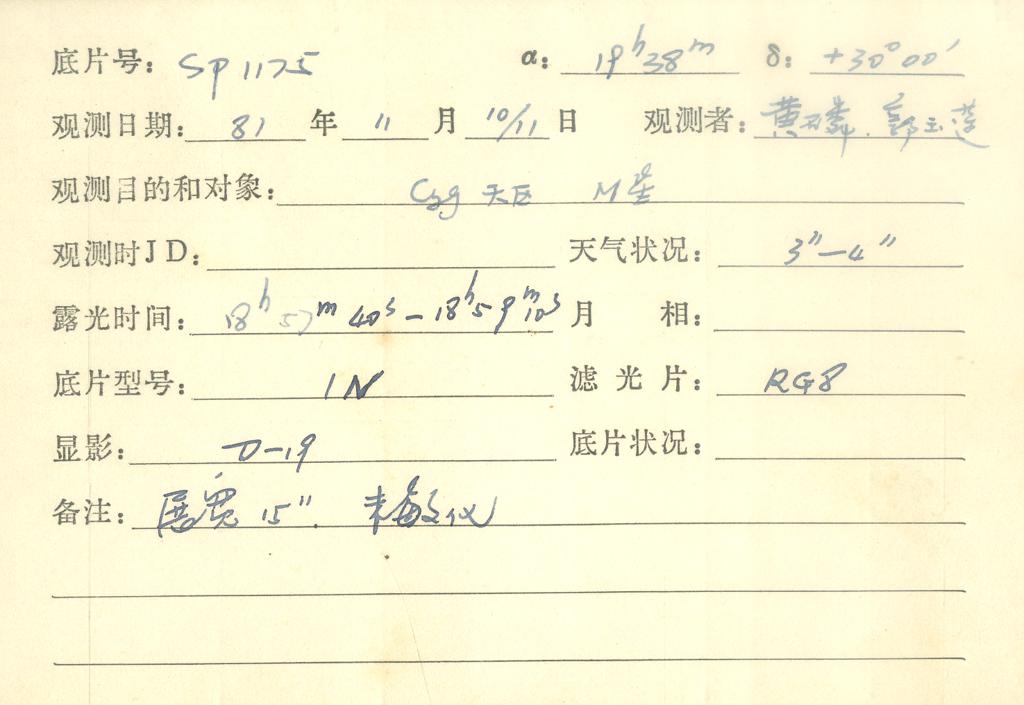 底片号: SP 1175 α: 19ʰ38ᵐ δ: +30°00′
观测日期: 81 年 11 月 10/11 日 观测者: 黄磷. 郭玉莲
观测目的和对象: Cyg 天区 M星
观测时JD: 天气状况: 3″—4″
露光时间: 18ʰ57ᵐ40ˢ—18ʰ59ᵐ10ˢ 月 相:
底片型号: IN 滤光片: RG8
显影: D-19 底片状况:
备注: 展宽 15″. 未敏化